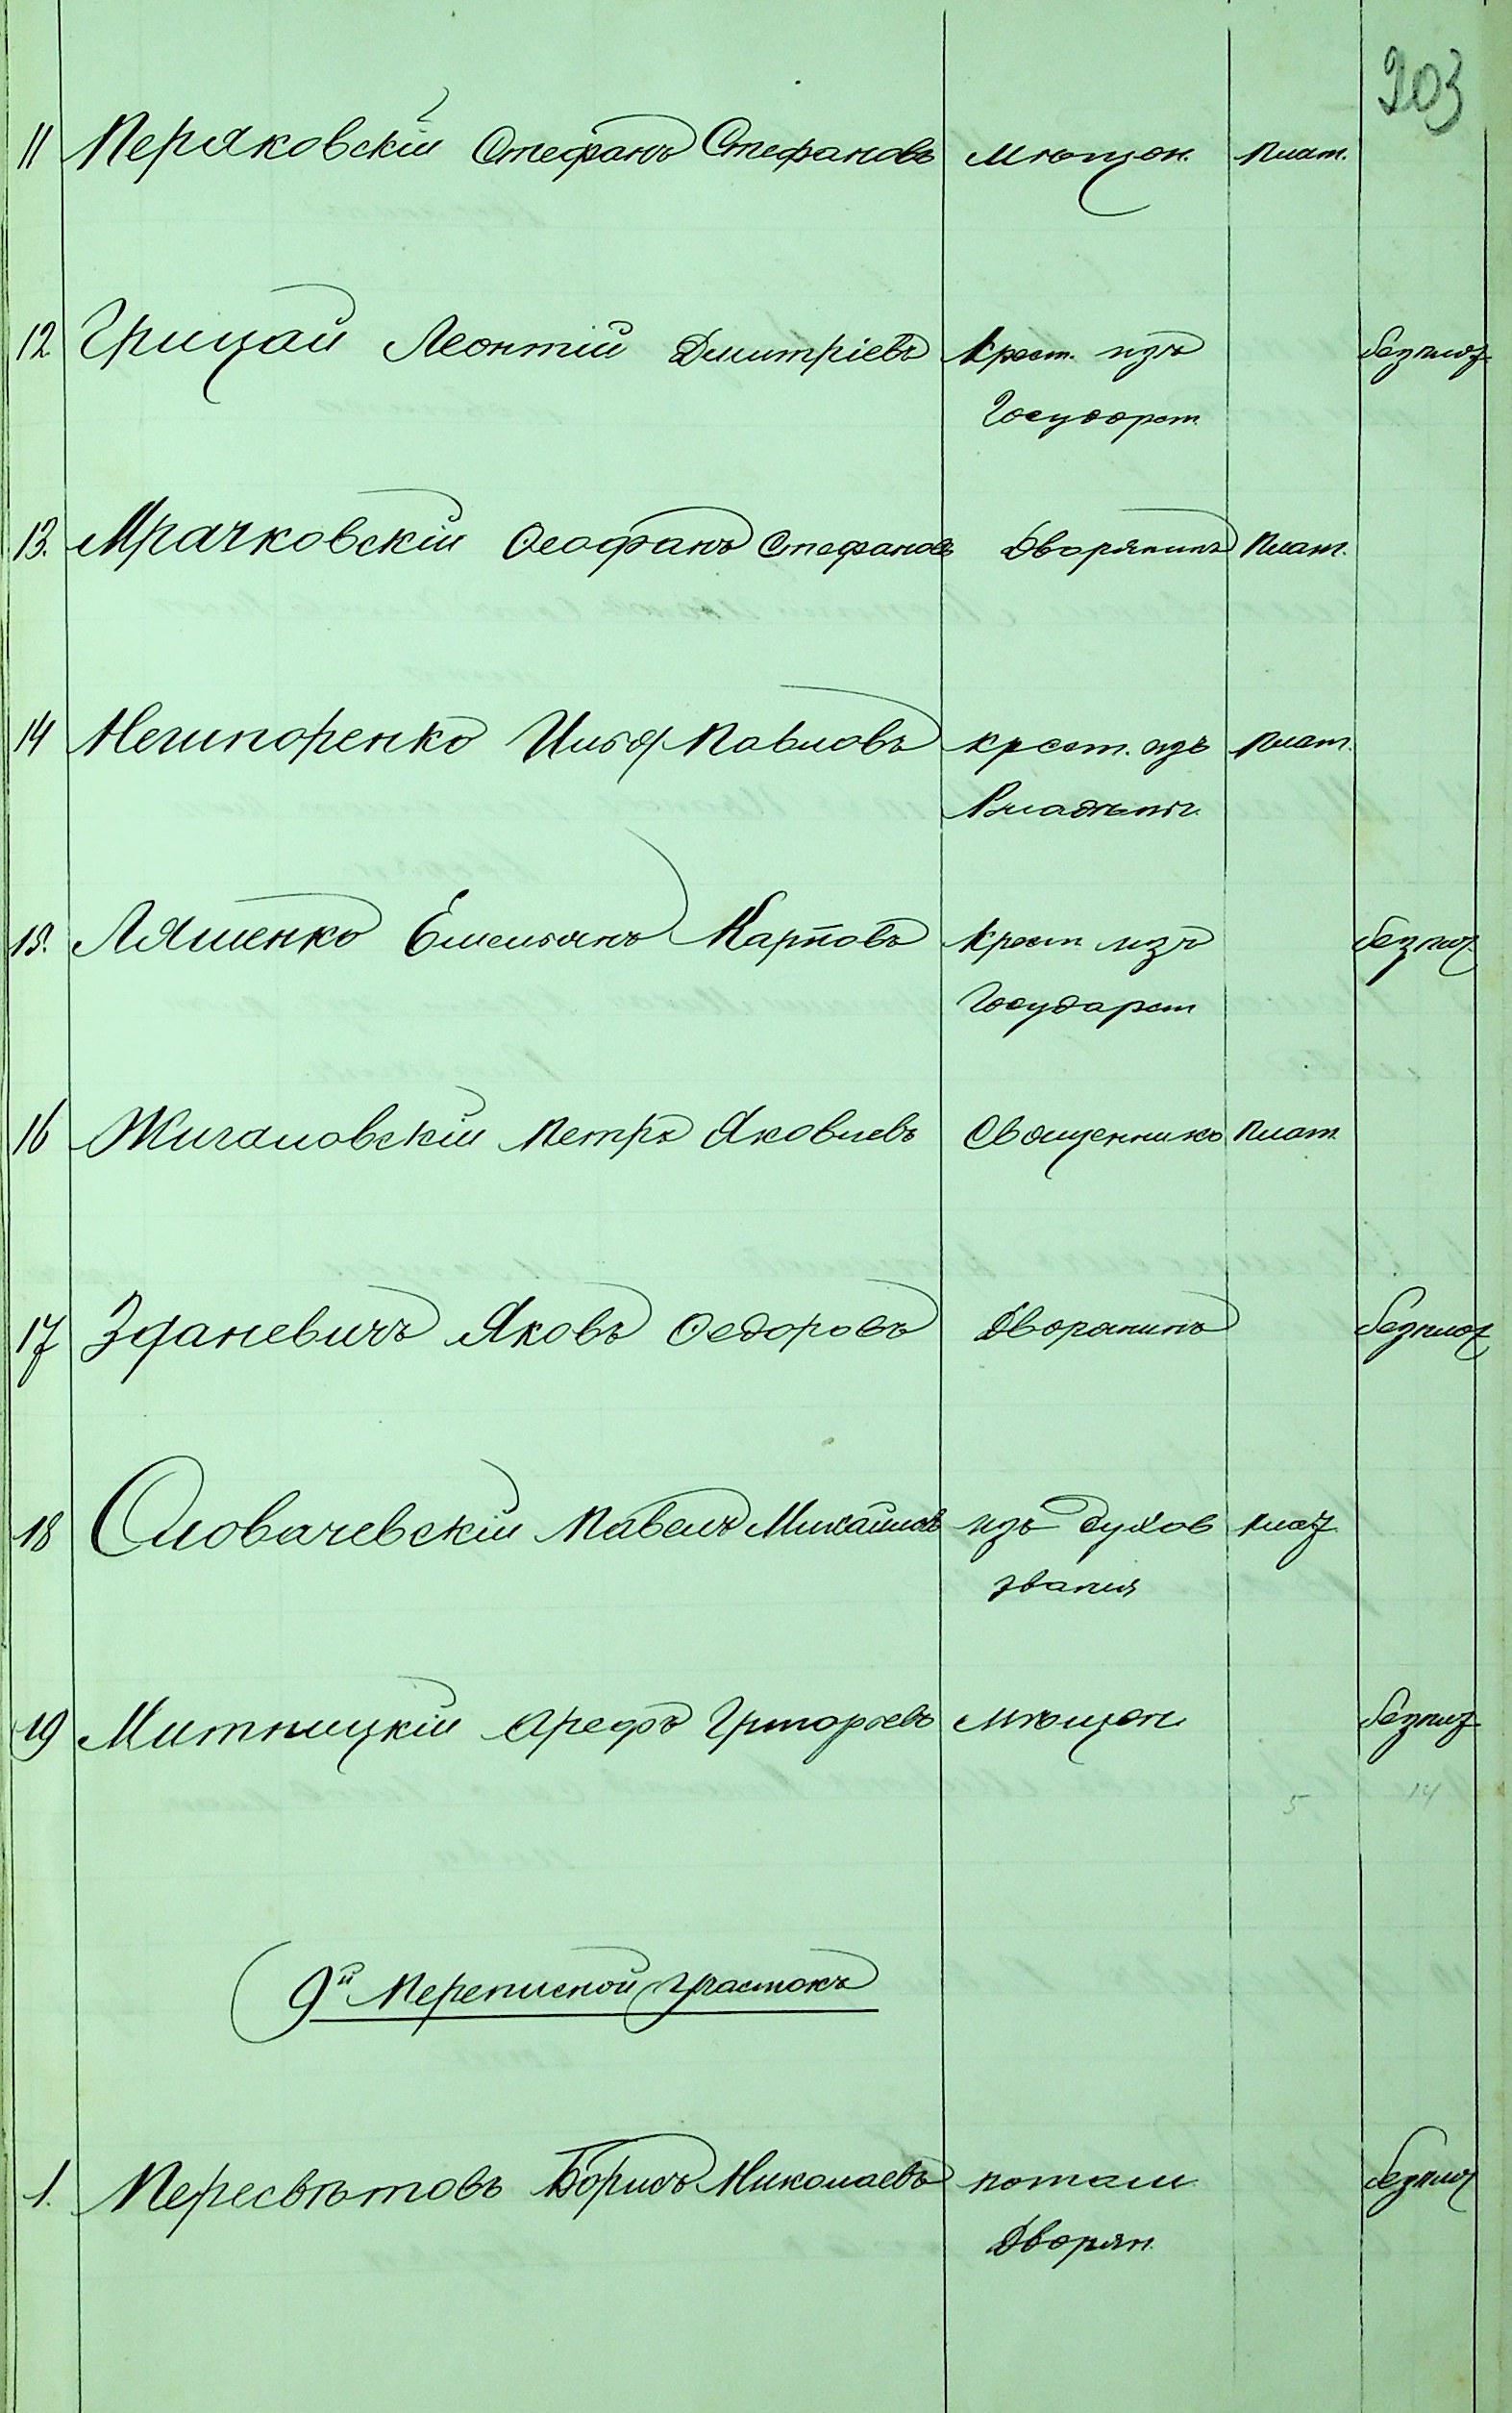 203
11 Перяковскій Стефанъ Стефановъ мѣщан. плат.
12 Грицай Леонтій Дмитріевъ Крест. изъ безплат
Государст.
13. Мрачковскій Ѳеофанъ Стефановъ Дворянинъ Плат.
14 Негипоренко Илья Павловъ крест. изъ плат.
Владѣльч.
15. Ляшенко Емельянъ Карповъ Крест изъ безпл
Государст
16 Жигаловскій Петръ Яковлевъ Священникъ плат
17 Здановичъ Яковъ Ѳедоровъ Дворянинъ безплат
18 Словачевскій Павелъ Михайловъ изъ духов плат
званія
19 Митницкій Арефъ Григорьевъ мѣщан безплат
5 14
9й Переписной участокъ
1. Пересвѣтовъ Борисъ Николаевъ потом безплат
Дворян.